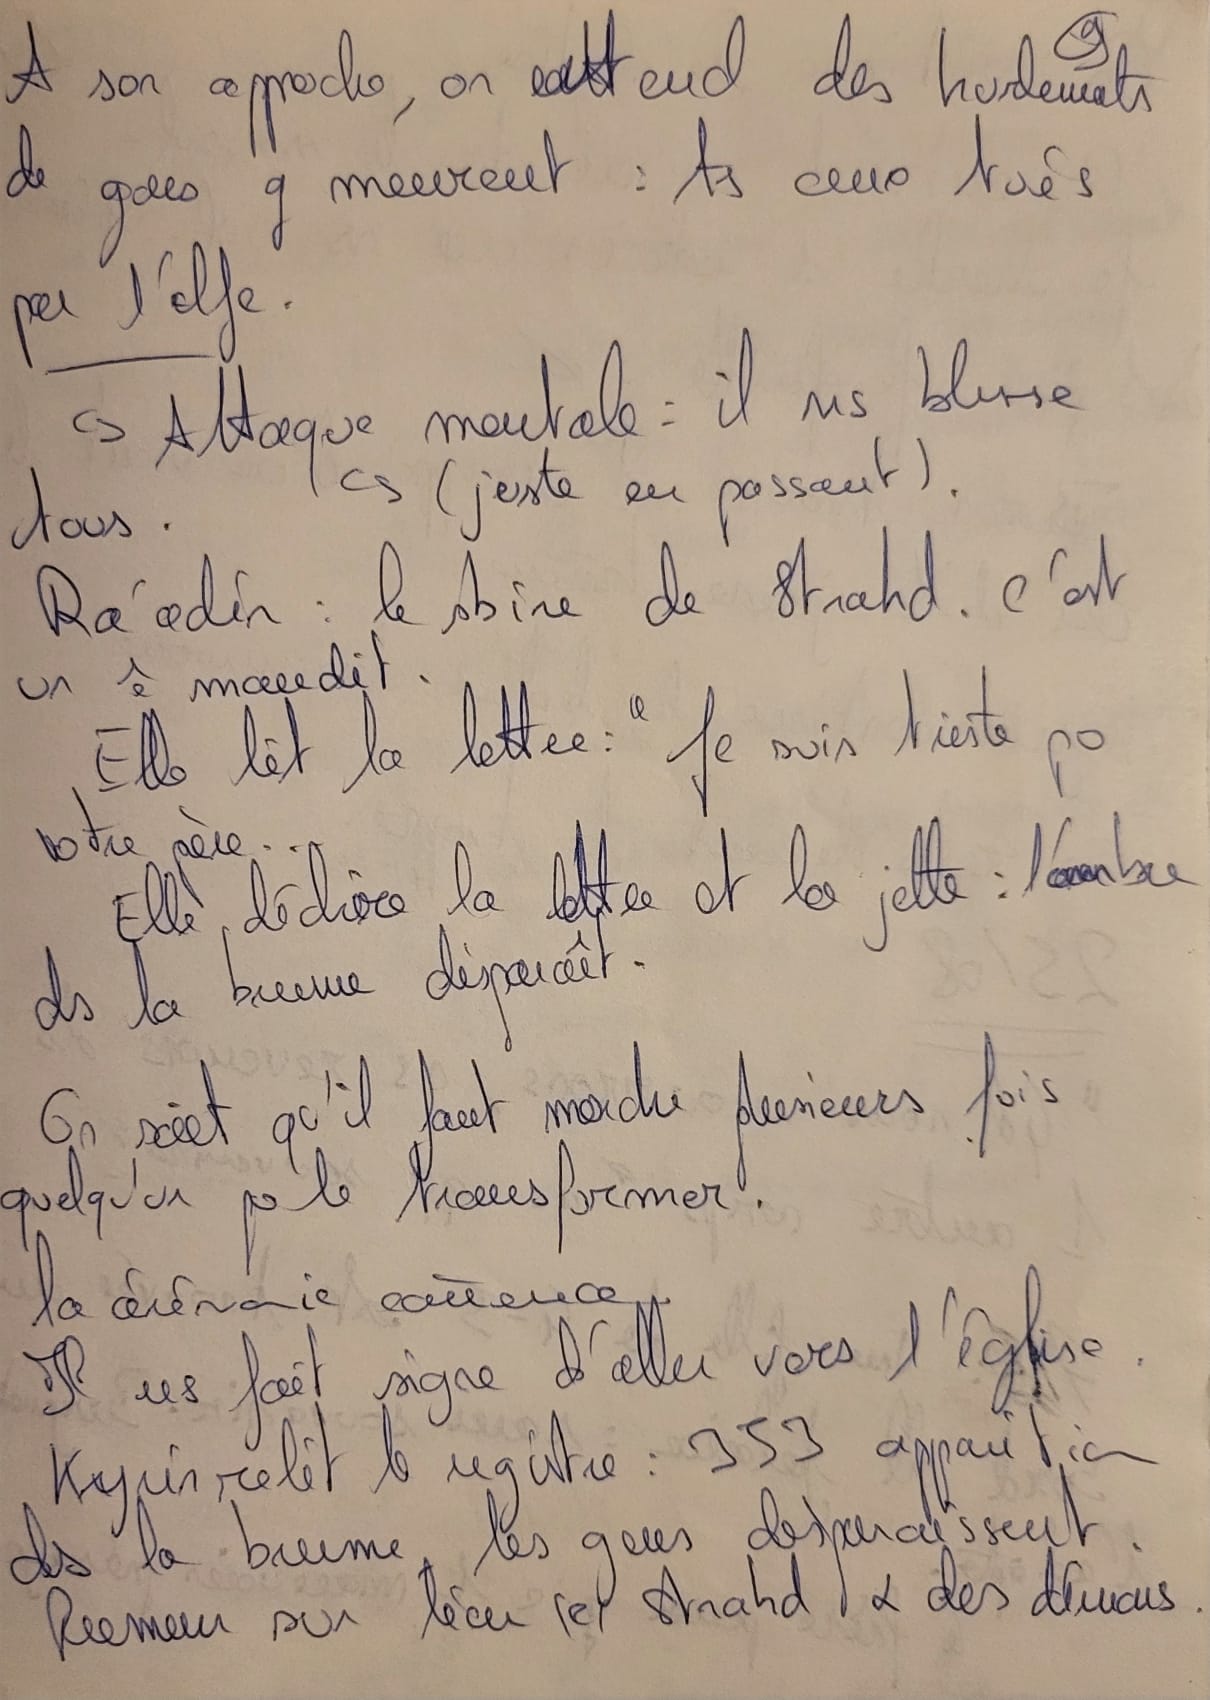 9
A son approche, on entend des hurlements
de gens q meurent : ts ceux tués
par l'elfe.
↳ Attaque mentale = il ns blesse
↳ (juste en passant).
tous.
Ra'adin : le sbire de Strahd. C'est
un ê maudit.
Elle lit la lettre : " Je suis triste po
votre père...
Elle déchire la lettre et la jette : l'ombre
ds la brume disparaît.
On sait qu'il faut mordre plusieurs fois
quelqu'un po le transformer.
la cérémonie commence.
Il ns fait signe d'aller vers l'église.
relit le registre : 353 apparition
ds la brume, les gens disparaissent.
Rumeur sur Strahd & des démons.